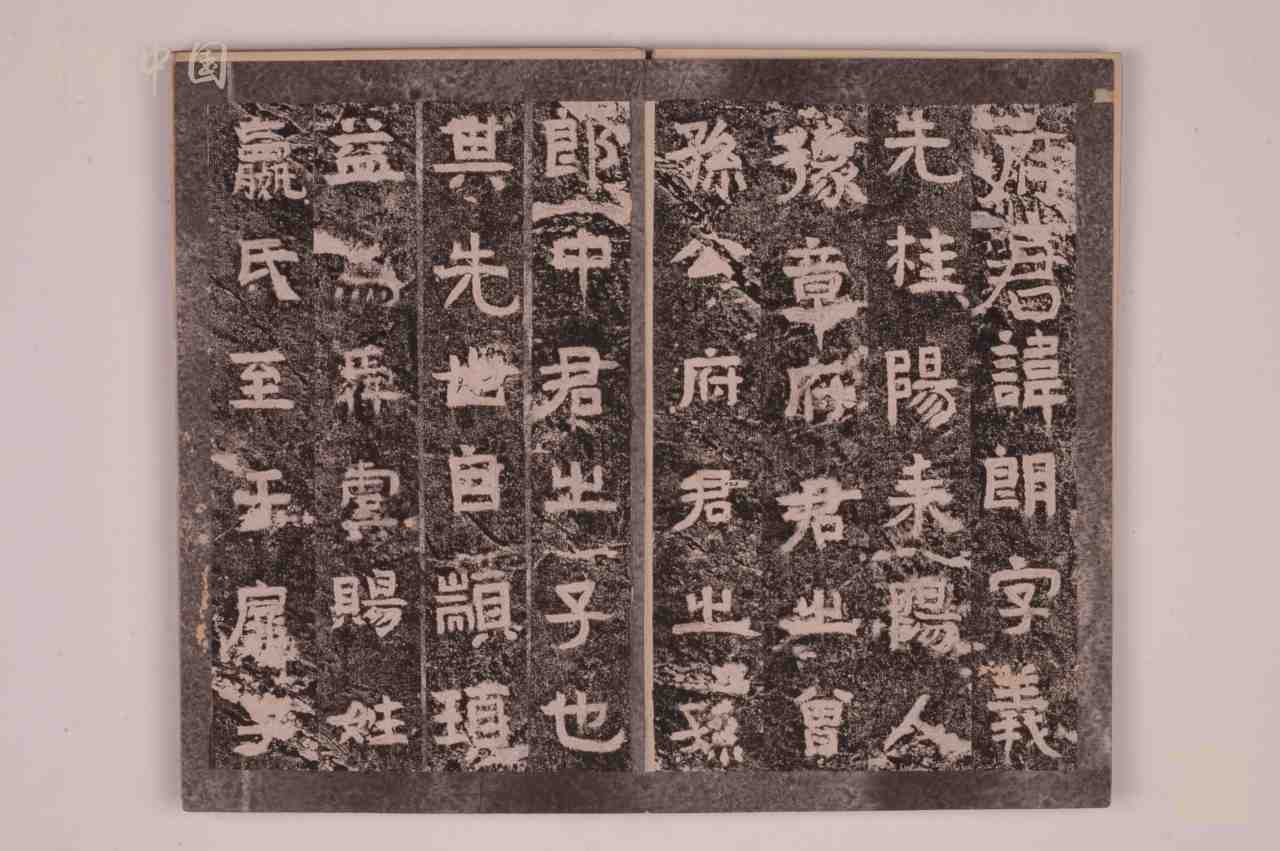 府君諱朗字義
先桂陽耒陽人
豫章府君之曾
孫公府君之孫
郎中君之子也
其先世自顓頊
益為舜虞賜姓
嬴氏至于扉子
中国